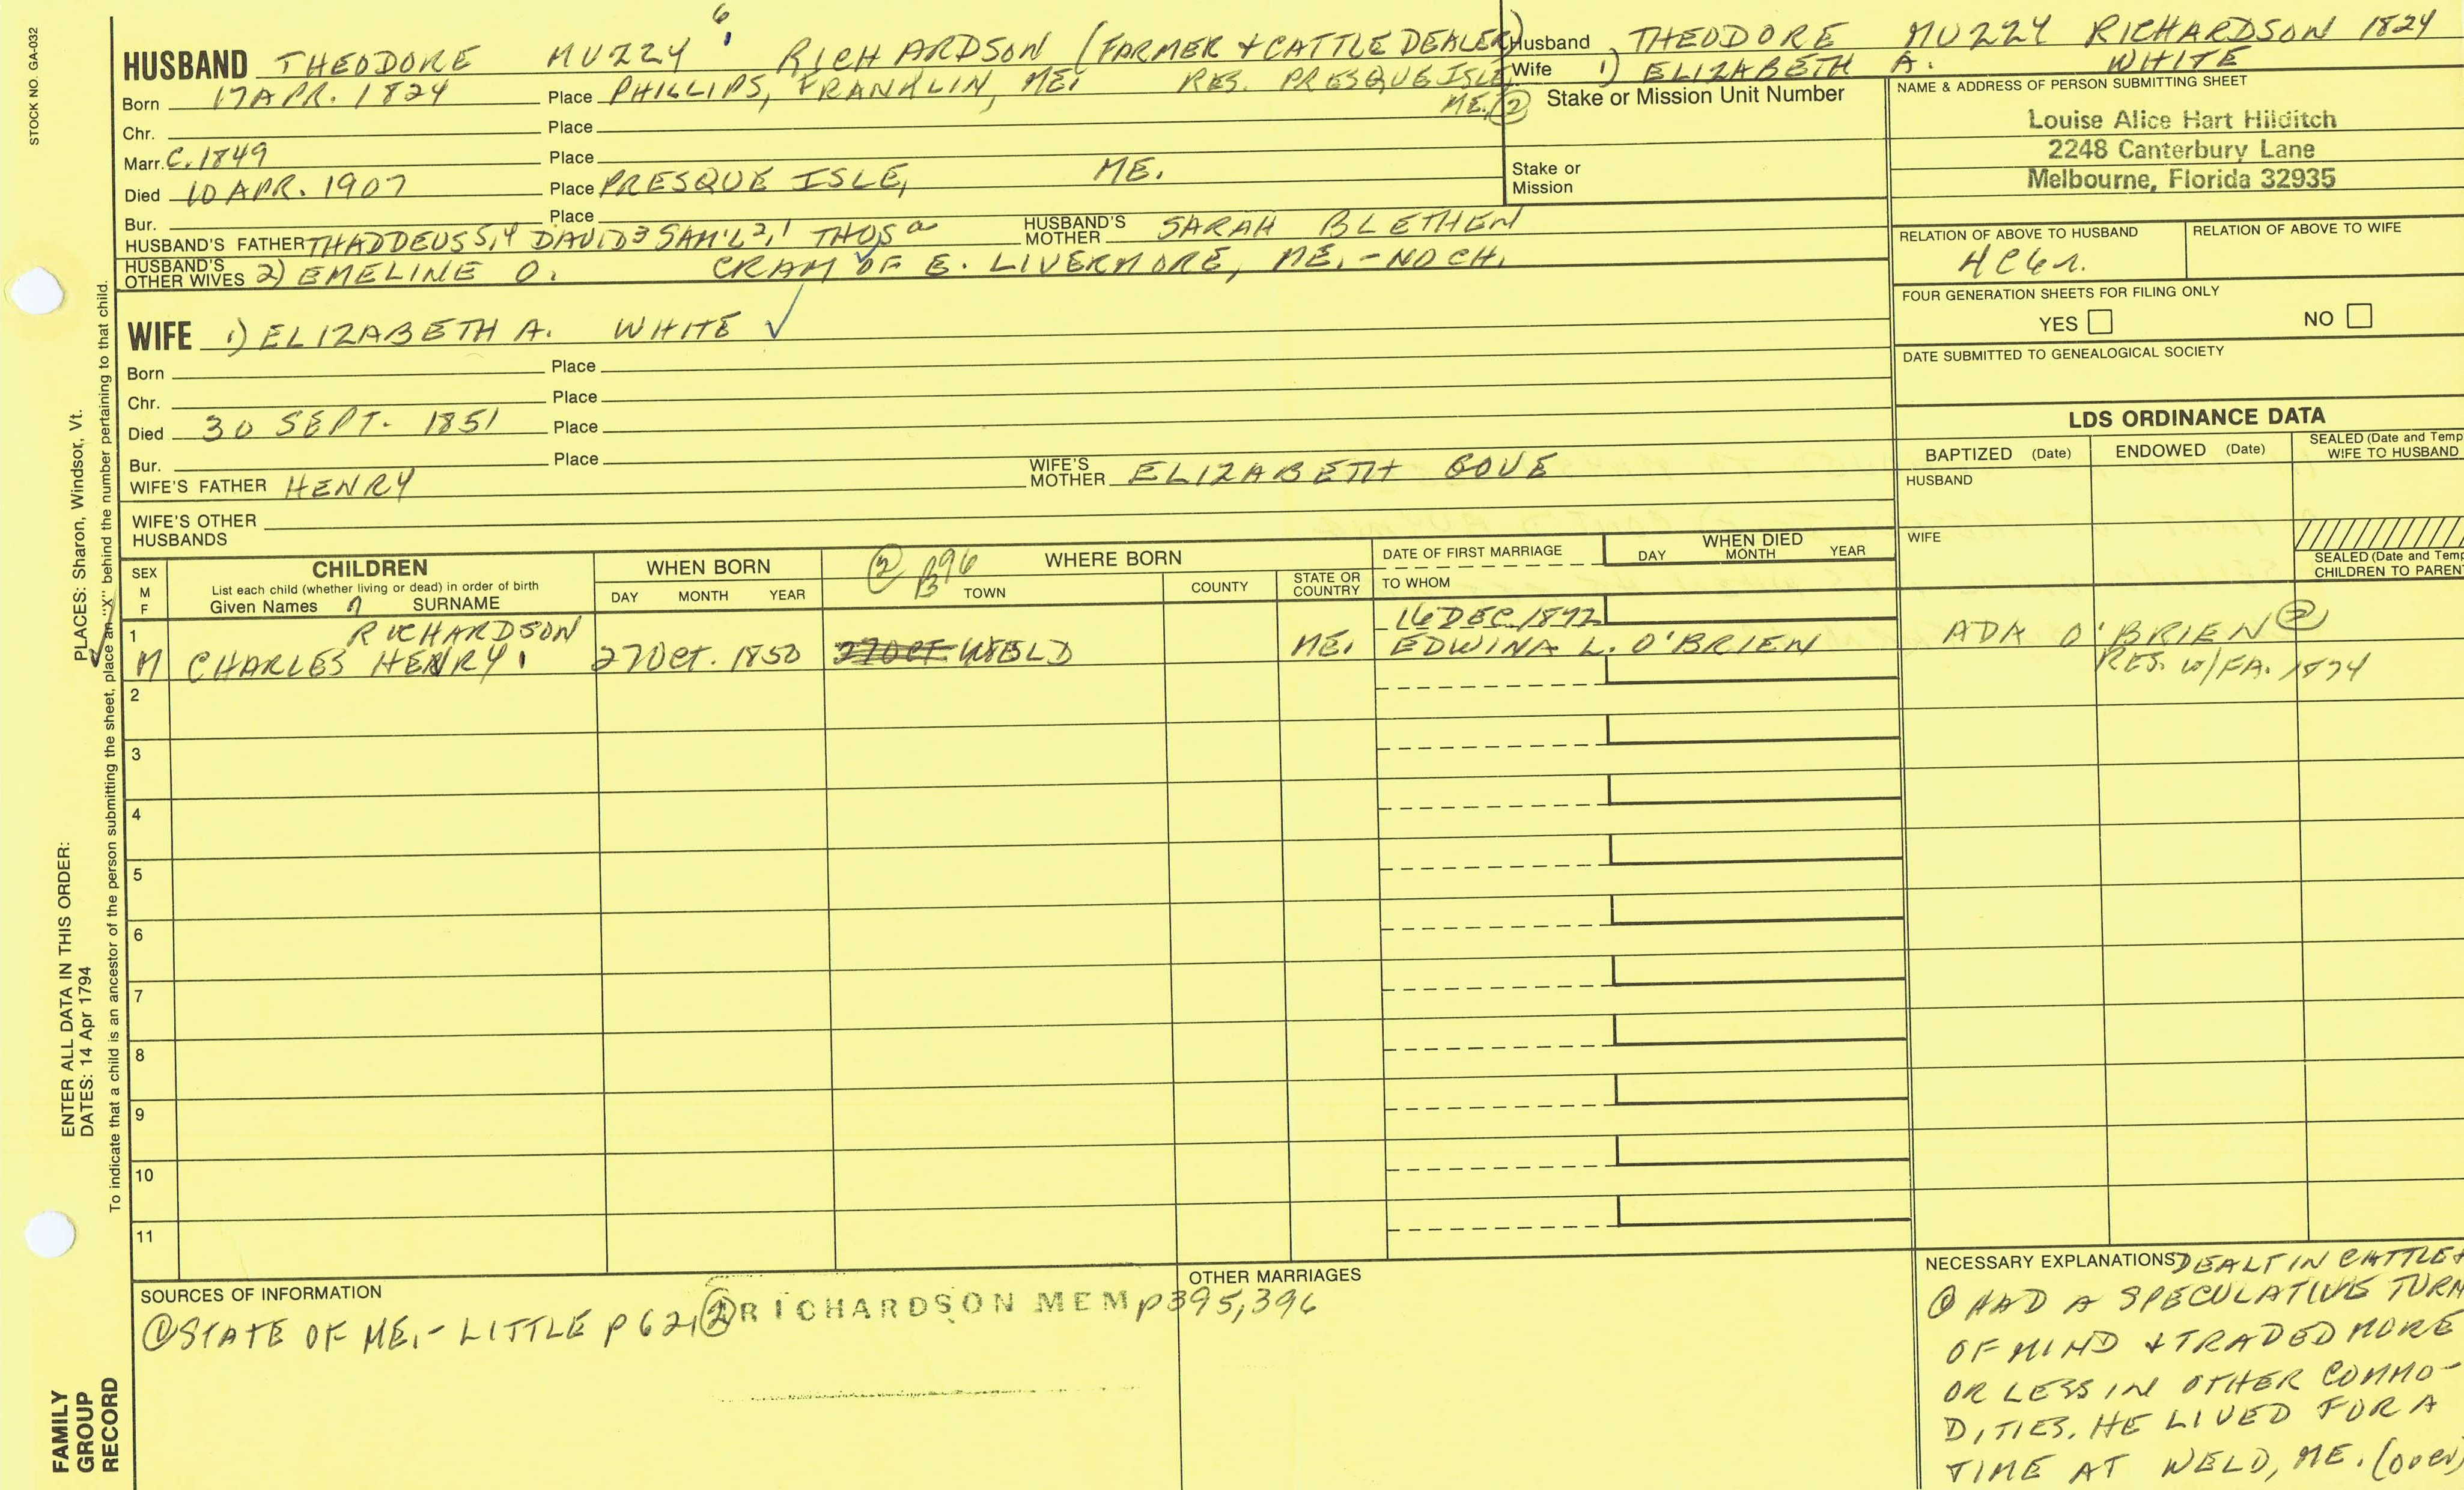 STOCK NO. GA-032
6
HUSBAND THEODORE MUZZY RICHARDSON (FARMER + CATTLE DEALER)
Born 17 APR. 1824 Place PHILLIPS, FRANKLIN, ME. RES. PRESQUE ISLE, ME. ②
Chr. Place
Marr. C. 1849 Place
Died 10 APR. 1907 Place PRESQUE ISLE, ME.
Bur. Place
HUSBAND'S FATHER THADDEUS 5,4 DAVID 3 SAM'L 2,1 THOS a HUSBAND'S MOTHER SARAH BLETHEN
HUSBAND'S OTHER WIVES 2) EMELINE O. CRAM OF E. LIVERMORE, ME. - NO CH.
WIFE 1) ELIZABETH A. WHITE ✓
Born Place
Chr. Place
Died 30 SEPT. 1851 Place
Bur. Place
WIFE'S FATHER HENRY WIFE'S MOTHER ELIZABETH GOVE
WIFE'S OTHER HUSBANDS
Husband THEODORE MUZZY RICHARDSON 1824
Wife 1) ELIZABETH A. WHITE
Stake or Mission Unit Number
Stake or Mission
NAME & ADDRESS OF PERSON SUBMITTING SHEET
Louise Alice Hart Hilditch
2248 Canterbury Lane
Melbourne, Florida 32935
RELATION OF ABOVE TO HUSBAND RELATION OF ABOVE TO WIFE
FOUR GENERATION SHEETS FOR FILING ONLY
YES NO
DATE SUBMITTED TO GENEALOGICAL SOCIETY
LDS ORDINANCE DATA
BAPTIZED (Date) ENDOWED (Date) SEALED (Date and Temp
WIFE TO HUSBAND
HUSBAND
WIFE
SEALED (Date and Temp
CHILDREN TO PAREN
SEX M F
CHILDREN
List each child (whether living or dead) in order of birth
Given Names SURNAME
WHEN BORN
DAY MONTH YEAR
② P396 WHERE BORN
TOWN COUNTY STATE OR COUNTRY
DATE OF FIRST MARRIAGE
TO WHOM
WHEN DIED
DAY MONTH YEAR
1 RICHARDSON 16 DEC. 1872
M CHARLES HENRY 27 OCT. 1850 27 OCT. WELD ME. EDWINA L. O'BRIEN ADA O'BRIEN ②
RES. W/FA. 1874
2
3
4
5
6
7
8
9
10
11
SOURCES OF INFORMATION
① STATE OF ME. - LITTLE p 621 ② RICHARDSON MEM p395,396
OTHER MARRIAGES
NECESSARY EXPLANATIONS DEALT IN CATTLE +
① HAD A SPECULATIVE TURN
OF MIND + TRADED MORE
OR LESS IN OTHER COMMO-
DITIES. HE LIVED FOR A
TIME AT WELD, ME. (over)
PLACES: Sharon, Windsor, Vt.
ENTER ALL DATA IN THIS ORDER:
DATES: 14 Apr 1794
To indicate that a child is an ancestor of the person submitting the sheet, place an "X" behind the number pertaining to that child.
FAMILY
GROUP
RECORD